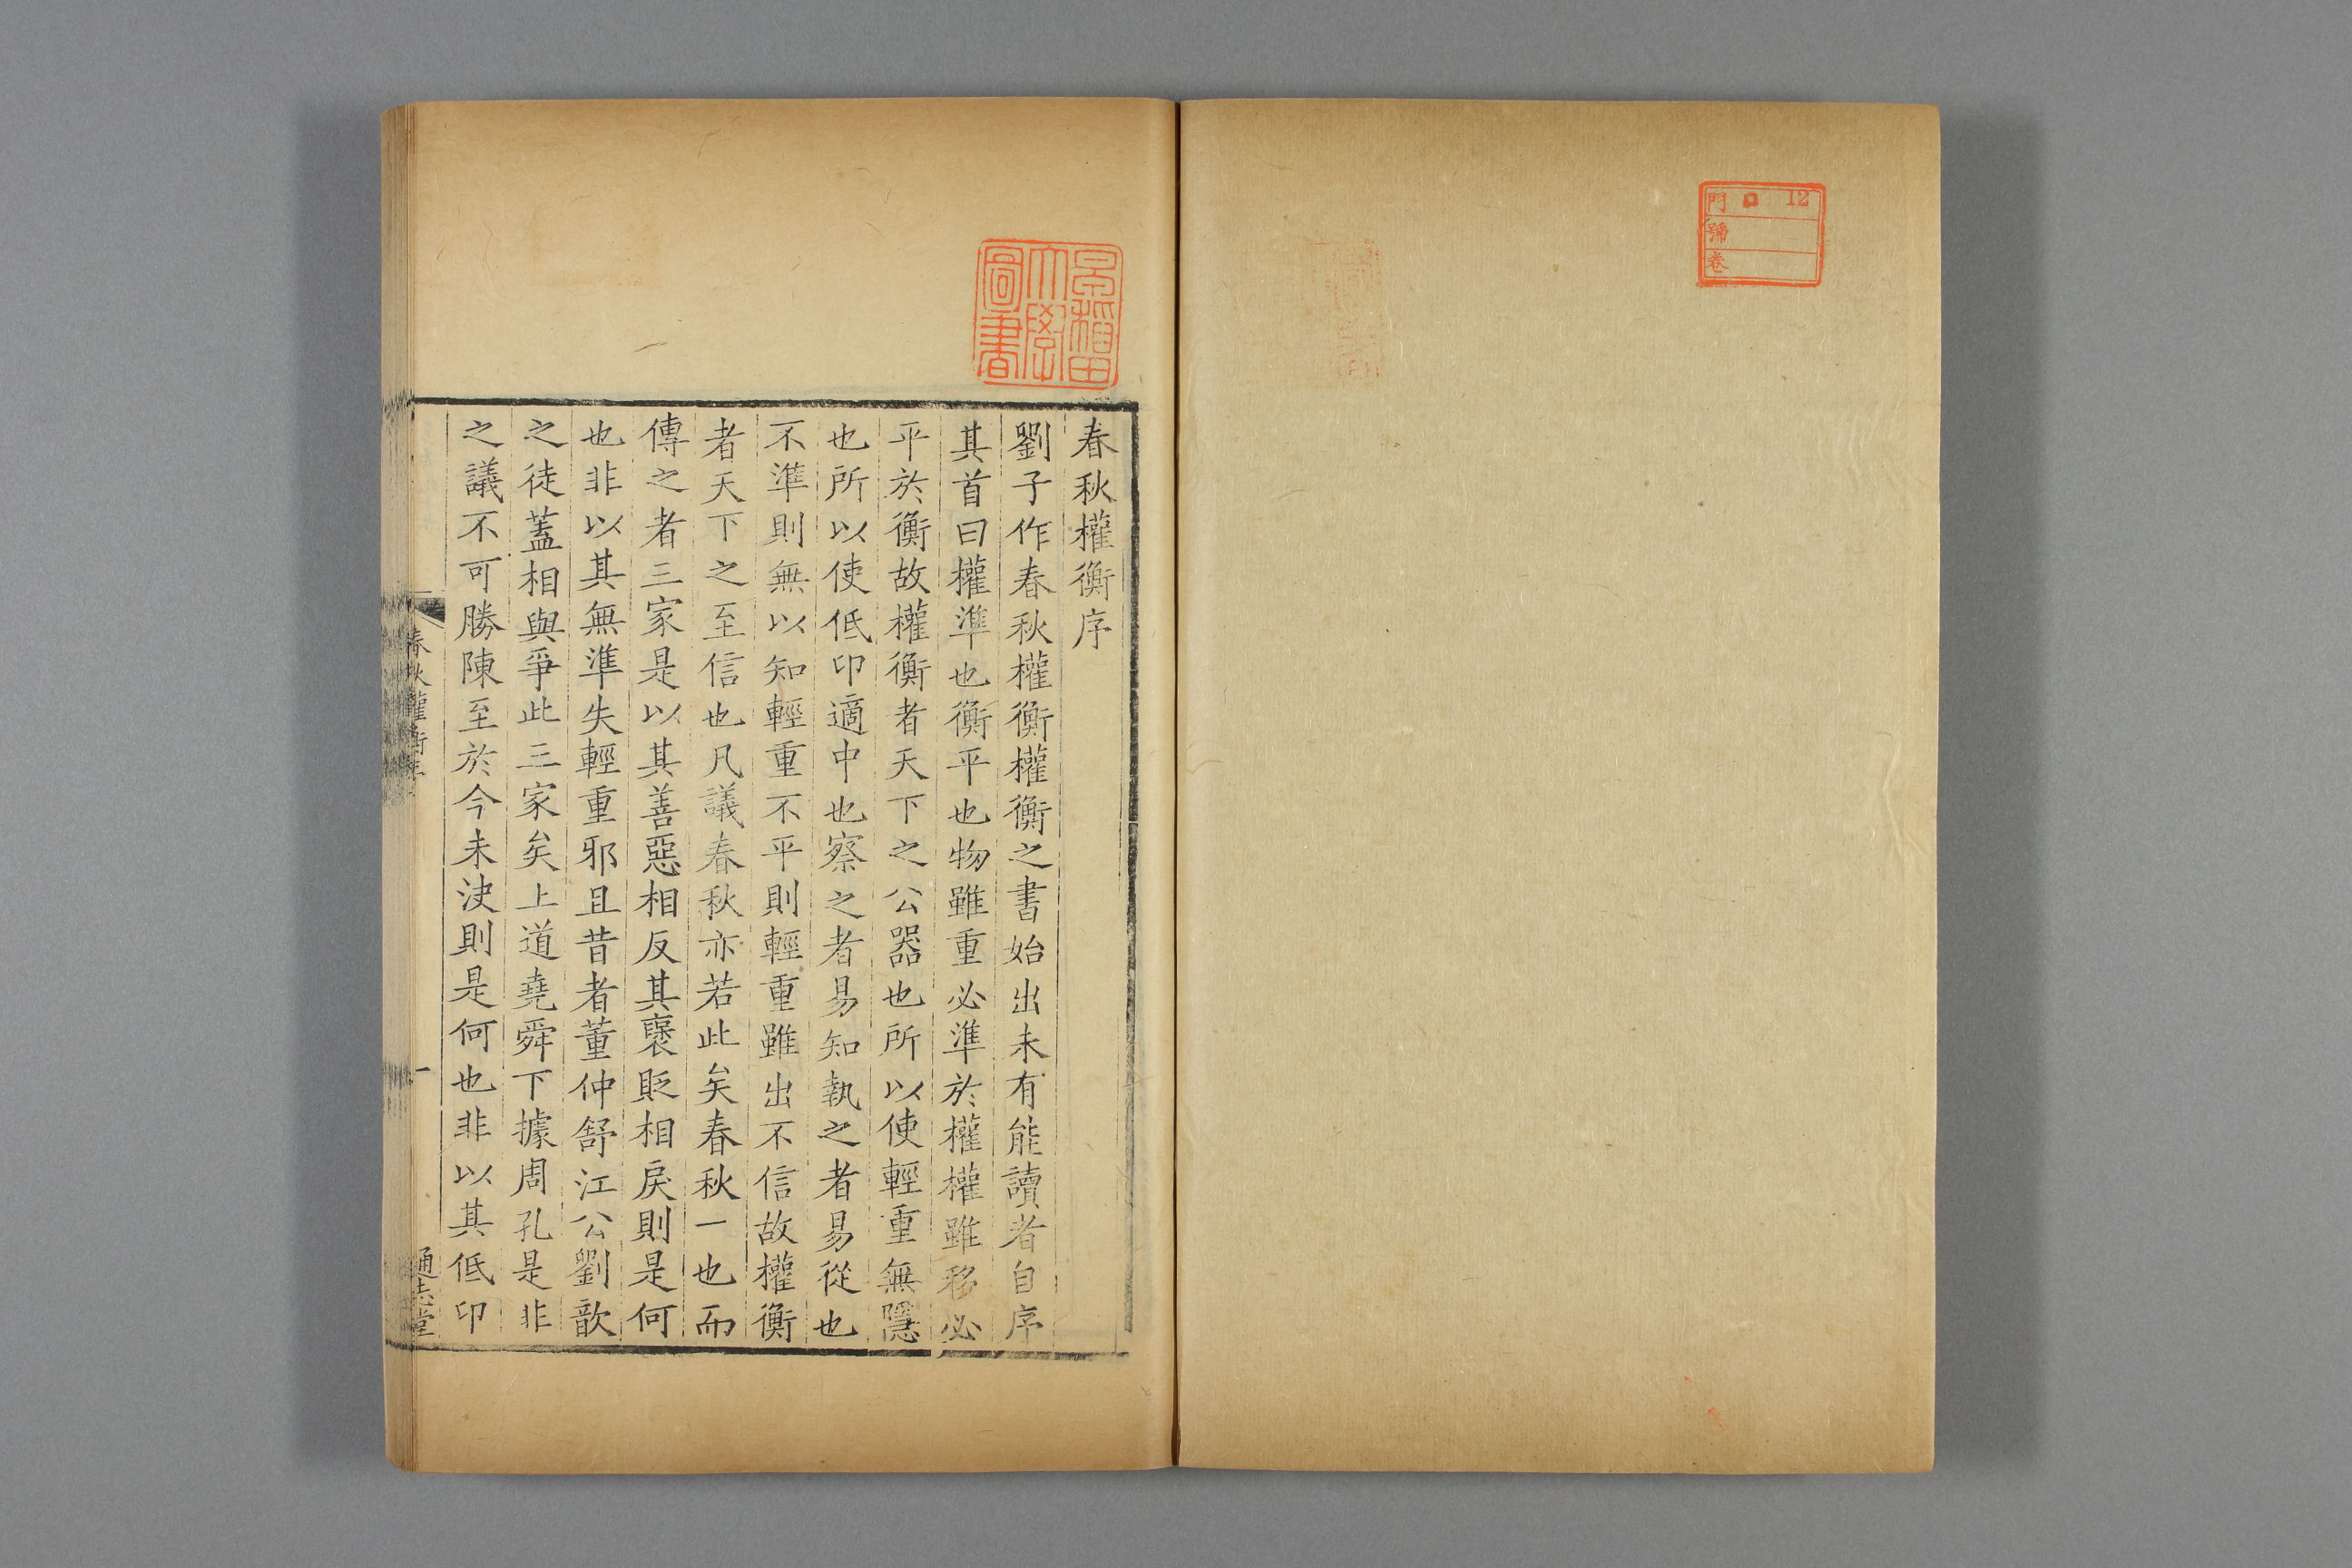 門 口 12
號
卷
早稲田
大學
圖書
春秋權衡序
劉子作春秋權衡權衡之書始出未有能讀者自序
其首曰權準也衡平也物雖重必準於權權雖移必
平於衡故權衡者天下之公器也所以使輕重無隱
也所以使低卬適中也察之者易知執之者易從也
不準則無以知輕重不平則輕重雖出不信故權衡
者天下之至信也凡議春秋亦若此矣春秋一也而
傳之者三家是以其善惡相反其襃貶相戾則是何
也非以其無準失輕重邪且昔者董仲舒江公劉歆
之徒蓋相與爭此三家矣上道堯舜下據周孔是非
之議不可勝陳至於今未決則是何也非以其低卬
春秋權衡序
一
通志堂